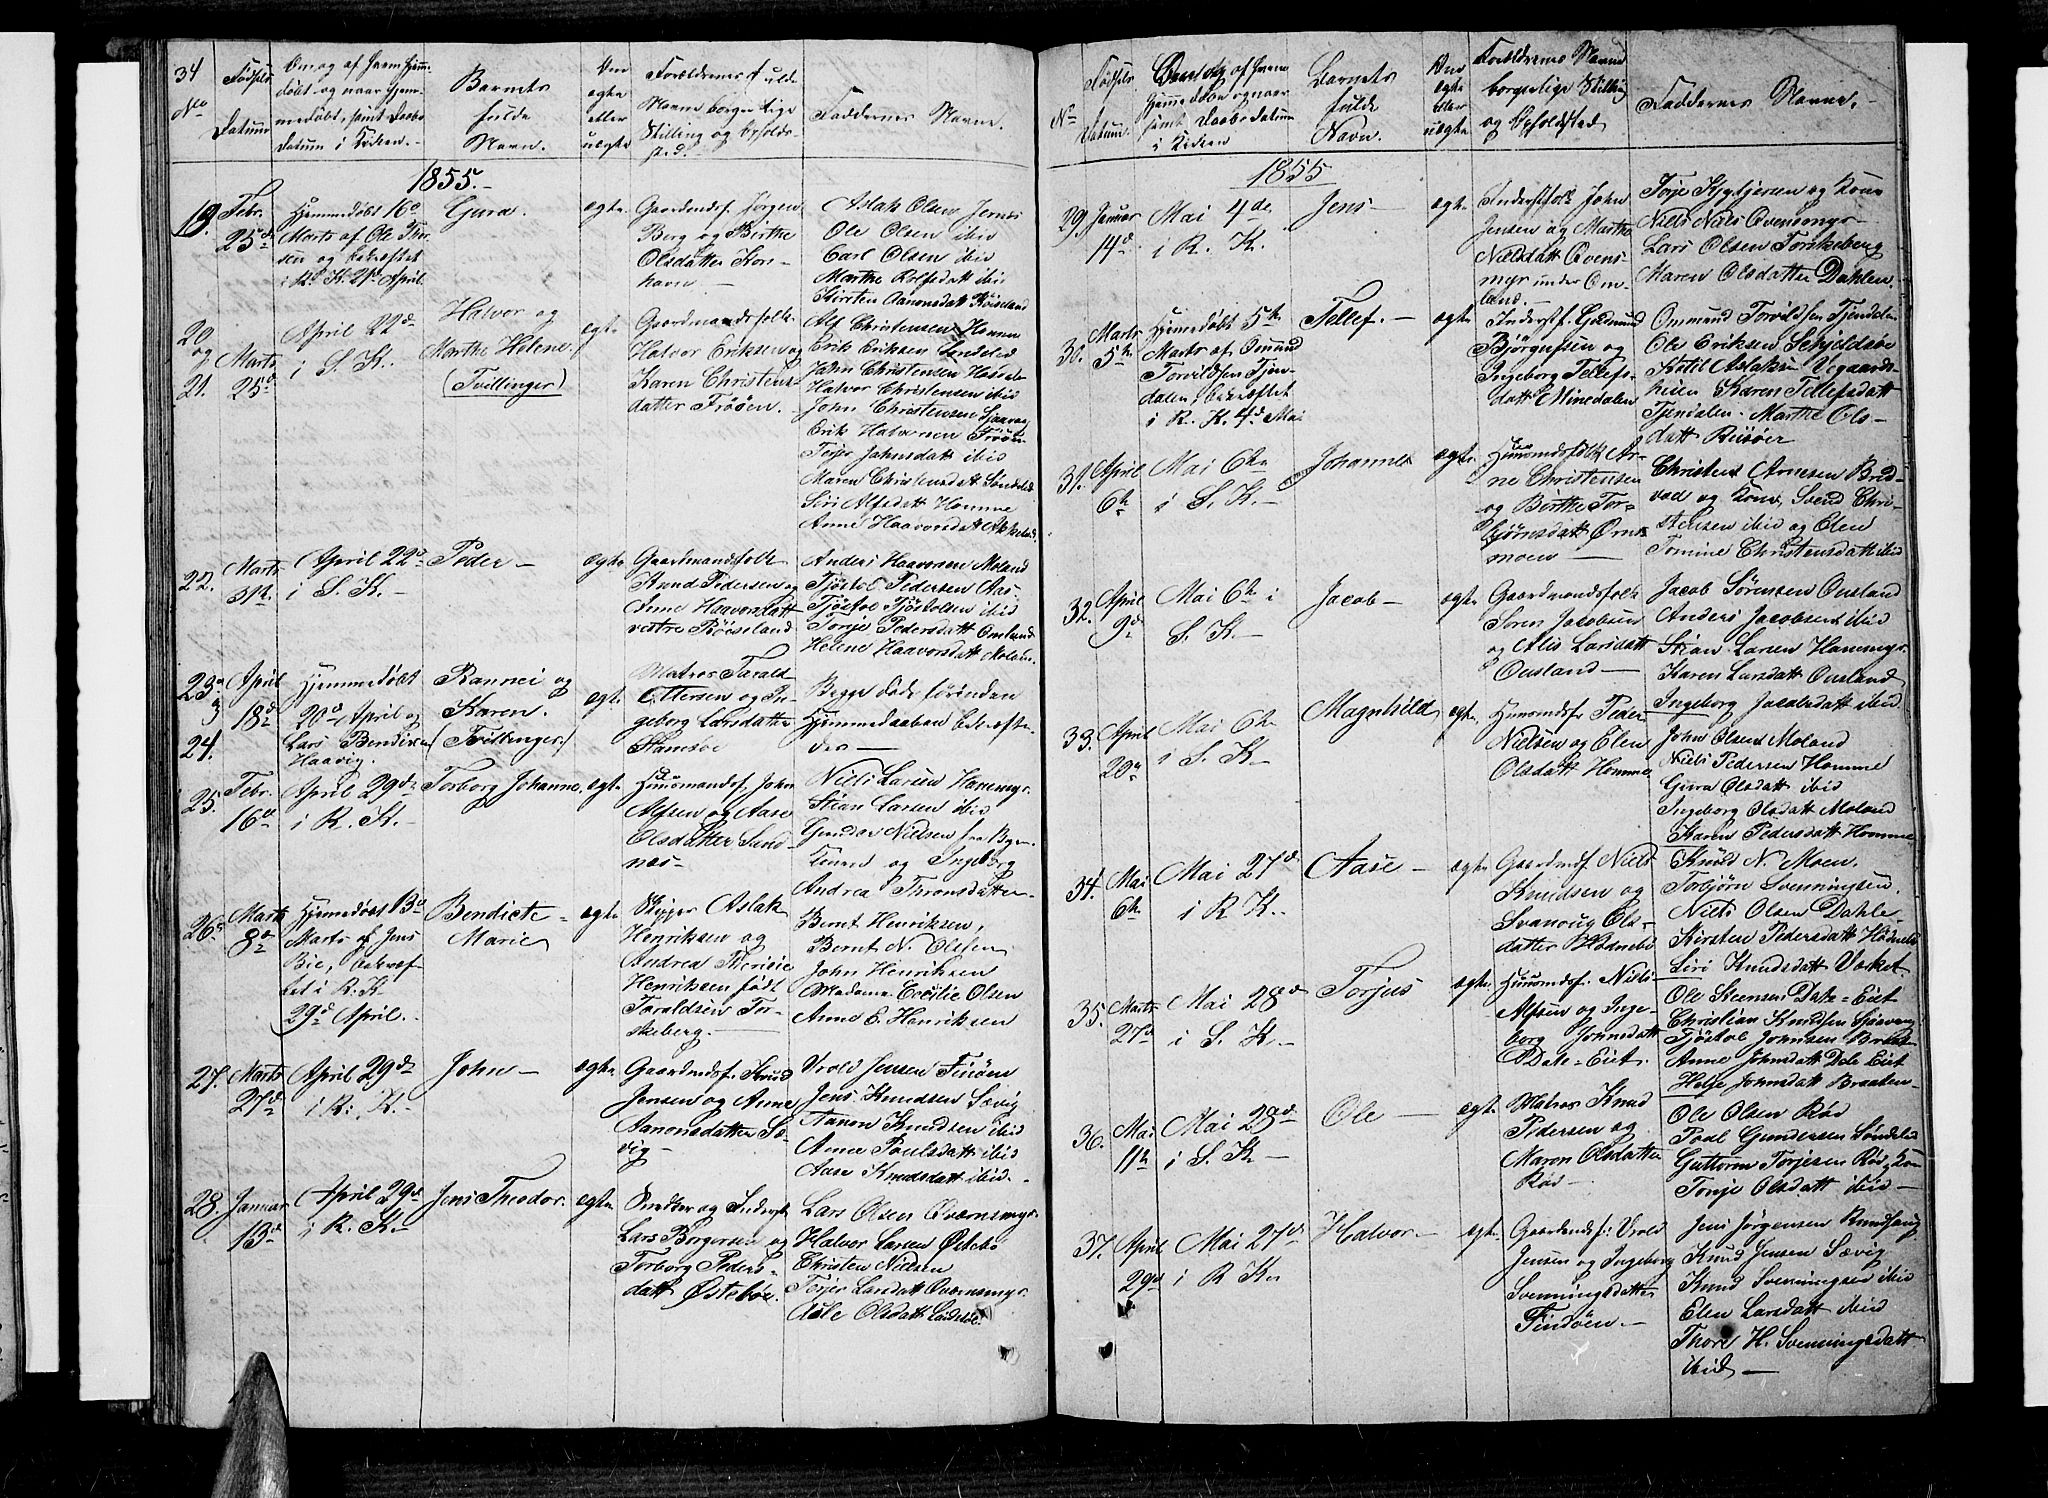 34
No
Fødsels
Datum
Om og af hvem hjem-
døbt og naar hjem-
medøbt, samt Daabs
Datum i Kirken.
Barnets
fulde
Navn.
Om
ægte
eller
uægte
Forældrenes fulde
Navne borgerlige
Stilling og Opholds-
sted.
Faddernes Navne.
1855.
19.
Febr.
25de
Hjemmedøbt 16d
Marts af Ole Thor-
sen og bekræftet
i R. K. 21d April
Gura.
ægte
Gaardmdsf. Jørgen
Berg og Berthe
Olsdatter
Aslak Olsen
Ole Olsen ibid
Carl Olsen ibid
Marthe Rolfsdatt ibid
Kirsten Aanonsdatt Röiseland
20
og
21.
Marts
25d
April 22d
i S. K.
Halvor og
Marthe Helene.
(Tvillinger)
ægte
Gaardmandsfolk
Halvor Eriksen og
Karen Christens-
datter Frøöen.
Alf Christensen Homme
Erik Eriksen Søndeled
John Christensen
Halvor Christensen ibid
John Christensen Sjaavaag
Erik Halvorsen Frøöen
Torjer Johnsdatt ibid
Maren Christensdatt Søndeled
Siri Alfsdatt Homme
Anne Haavorsdatt Akeland
22.
Marts
31te
April 22d
i S. K. —
Peder —
ægte
Gaardmandsfolk
Knud Pedersen og
Anne Haavorsdatt
vestre Röiseland
Anders Haavorsen Moland
Tjöstol Pedersen Aas
Tjöstol Tjöstolsen ibid
Tonje Pedersdatt Omland
Helene Haavorsdatt Moland
23
og
24.
April
18d
Hjemmedøbt
20d April af
Lars Bendixen
Haavig.
Rannei og
Karen.
(Tvillinger.)
ægte
Matros Tarald
Ottersen og In-
geborg Larsdatter
Stamsöe
Begge døde förinden
Hjemmedaaben bekræfte-
des —
25.
Febr.
16d
April 29d
i R. K. —
Torborg Johanne.
ægte
Huusmandsf. John
Alfsen og Aase
Olsdatter Sand-
næs —
Niels Larsen Havemyr
Stian Larsen ibid
Gunder Nielsen fra Byen
og Ingeborg
Andrea Thronsdatter
26.
Marts
8d
Hjemmedøbt 13d
Marts af Jens
Bie, bekræf-
tet i R. K.
29d April. —
Bendicte
Marie
ægte
Skipper Aslak
Henriksen og
Andrea Therisie
Henriksen født
Taraldsen Tor-
skeberg. —
Bernt Henriksen,
Bernt N. Olsen
John Henriksen
Madame Cecilie Olsen
Anne E. Henriksen
27.
Marts
27d
April 29d
i R. K. —
John —
ægte
Gaardmdsf. Knud
Jensen og Anne
Aanonsdatter Sæ-
vig —
Vrold Jensen Findöen
Jens Knudsen Sævig
Aanon Knudsen ibid
Anne Poulsdatt ibid
Aase Knudsdatt ibid. —
28.
Januar
13d
April 29d
i R. K. —
Jens Theodor.
ægte
Snedker og Inderst
Lars Borgersen og
Torborg Peders-
datt Østeböe.
Lars Olsen Qværnsmyr
Halvor Larsen Østebö
Christen Nielsen
Torjer Larsdatt Qværnsmyr
Aasle Olsdatt
No
Fødsels
Datum.
Om og af hvem
hjemmedøbt og naar
samt Daabs Datum
i Kirken
Barnets
fulde
Navn.
Om
ægte
eller
uægte
Forældrenes Navne
borgerlige Stilling
og Opholdssted
Faddernes Navne. —
1855
29.
Januar
14d
Mai 4de
i R. K.
Jens —
ægte
Inderstfolk John
Jensen og Marthe
Nielsdatt Qvens-
myr under Om-
land. —
Torje Kjytjersen og Kone
Niels Niels Qvensmyr —
Lars Olsen Torskeberg
Maren Olsdatter Dahlen.
30.
Marts
5te
Hjemmedøbt 5te
Marts af Omund
Torvildsen Tjen-
dalen, bekræftet
i R. K. 4d Mai
Tellef. —
ægte
Inderstf. Gudmund
Björgufsen og
Ingeborg Tellefs-
datt Minedalen
Ommund Torvildsen Tjendalen
Ole Eriksen Schjeldsöe
Ketil Aslaksen Vegaards-
heien Karen Tellefsdatt
Tjendalen. Marthe Ols-
datt Riisöer
31.
April
6te
Mai 6te
i S. K. —
Johannes
ægte
Huusmdsfolk Ar-
ne Christensen
og Berthe Tor-
björnsdatt Ørns-
moen —
Christen Arnesen Bred-
vad og Kone, Svend Chri-
stensen ibid og Elen
Tomine Christensdatt ibid
32.
April
9d
Mai 6te i
S. K. —
Jacob —
ægte
Gaardmandsfolk
Soren Jacobsen
og Alis Larsdatt
Ousland —
Jacob Sörensen Ousland
Anders Jacobsen ibid
Stian Larsen Havemyr
Karen Larsdatt Ousland
Ingeborg Jacobsdatt ibid
33.
April
20d
Mai 6te
i S. K. —
Magnhild
ægte
Huusmdsf. Peder
Nielsen og Elen
Olsdatt Homme
John Olsen Moland
Niels Pedersen Homme
Gura Olsdatt ibid
Ingeborg Olsdatt Moland
Karen Pedersdatt Homme
34.
Mai
6te
Mai 27d
i R K.
Aase —
ægte
Gaardmdsf. Niels
Knudsen og
Svanoug Ols-
datter Hödnebö
Knud N. Moen.
Torbjörn Svenningsen.
Niels Olsen Dahle
Kirsten Pedersdatt Hödnebö
Siri Knudsdatt Varket
35.
Marts
27d
Mai 28d
i S. K. —
Torjus
ægte
Huusmdsf. Niels
Alfsen og Inge-
borg Johnsdatt
Dale-Eiet.
Ole Steensen Dale-Eiet
Christian Knudsen Sjaavaag
Tjöstol Johnsen Braaten
Anne Johnsdatt Dale Eiet
Helje Johnsdatt Braaten
36.
Mai
11te
Mai 28d
i S. K —
Ole —
ægte
Matros Knud
Pedersen og
Maren Olsdatter
Röd —
Ole Olsen Röd
Poul Gundersen Söndeled
Guttorm Torjesen Röd, Kone
Tonje Olsdatt ibid —
37.
April
29d
Mai 27d
i R K.
Halvor —
ægte
Gaardmdsf: Vrold
Jensen og Ingeborg
Svenningsdatter
Findöen. —
Jens Jörgensen
Knud Jensen Sævig
Knud Svenningsen ibid
Elen Larsdatt ibid
Thore H. Svenningsdatt
ibid —